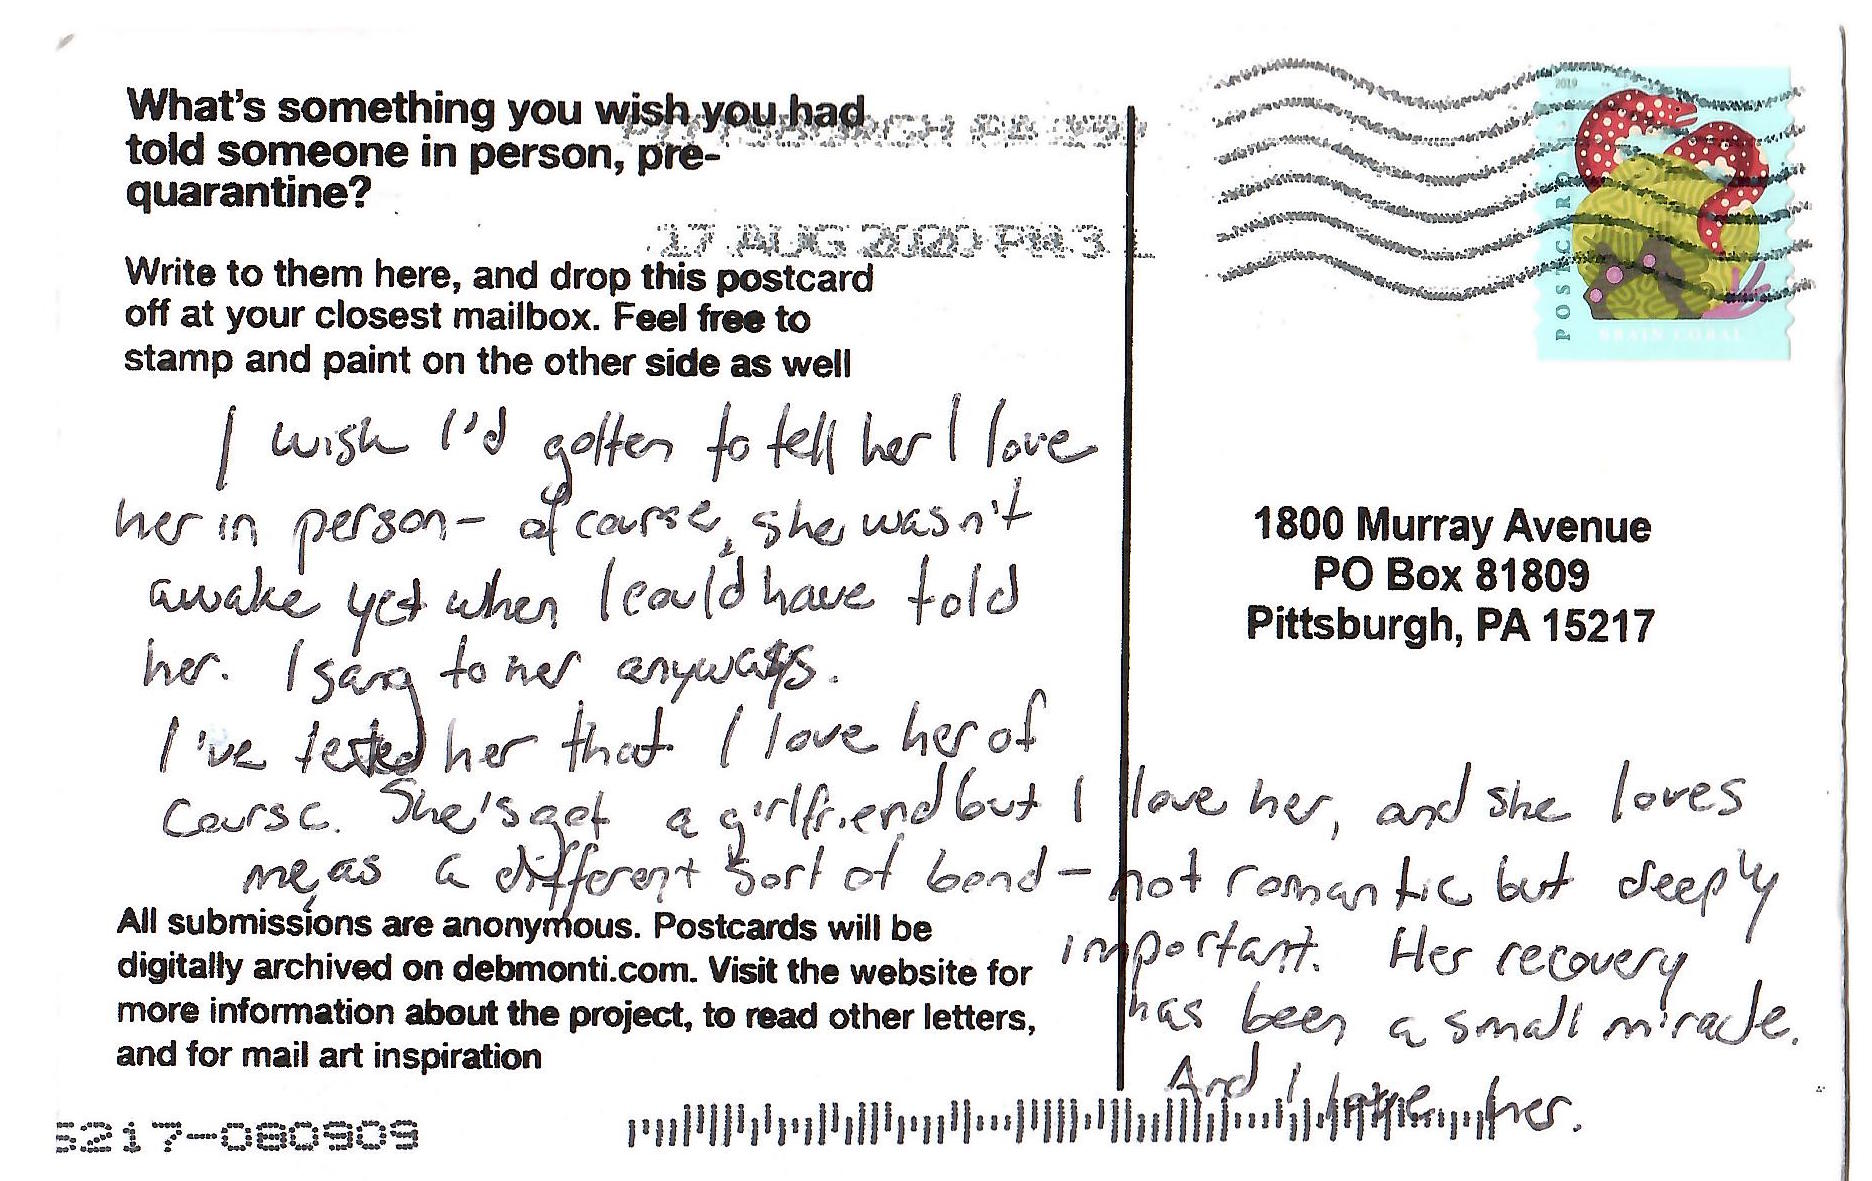 What's something you wish you had
told someone in person, pre-
quarantine?
PITTSBURGH PA
17 AUG 2020 PM 3 L
Write to them here, and drop this postcard
off at your closest mailbox. Feel free to
stamp and paint on the other side as well
I wish I'd gotten to tell her I love
her in person - of course, she wasn't
awake yet when I could have told
her. I sang to her anyways.
I've texted her that I love her of
course. She's got a girlfriend but I love her, and she loves
me, as a different sort of bond - not romantic but deeply
important. Her recovery
has been a small miracle.
And I love her.
All submissions are anonymous. Postcards will be
digitally archived on debmonti.com. Visit the website for
more information about the project, to read other letters,
and for mail art inspiration
5217-080909
2019
POSTCARD
BRAIN CORAL
1800 Murray Avenue
PO Box 81809
Pittsburgh, PA 15217